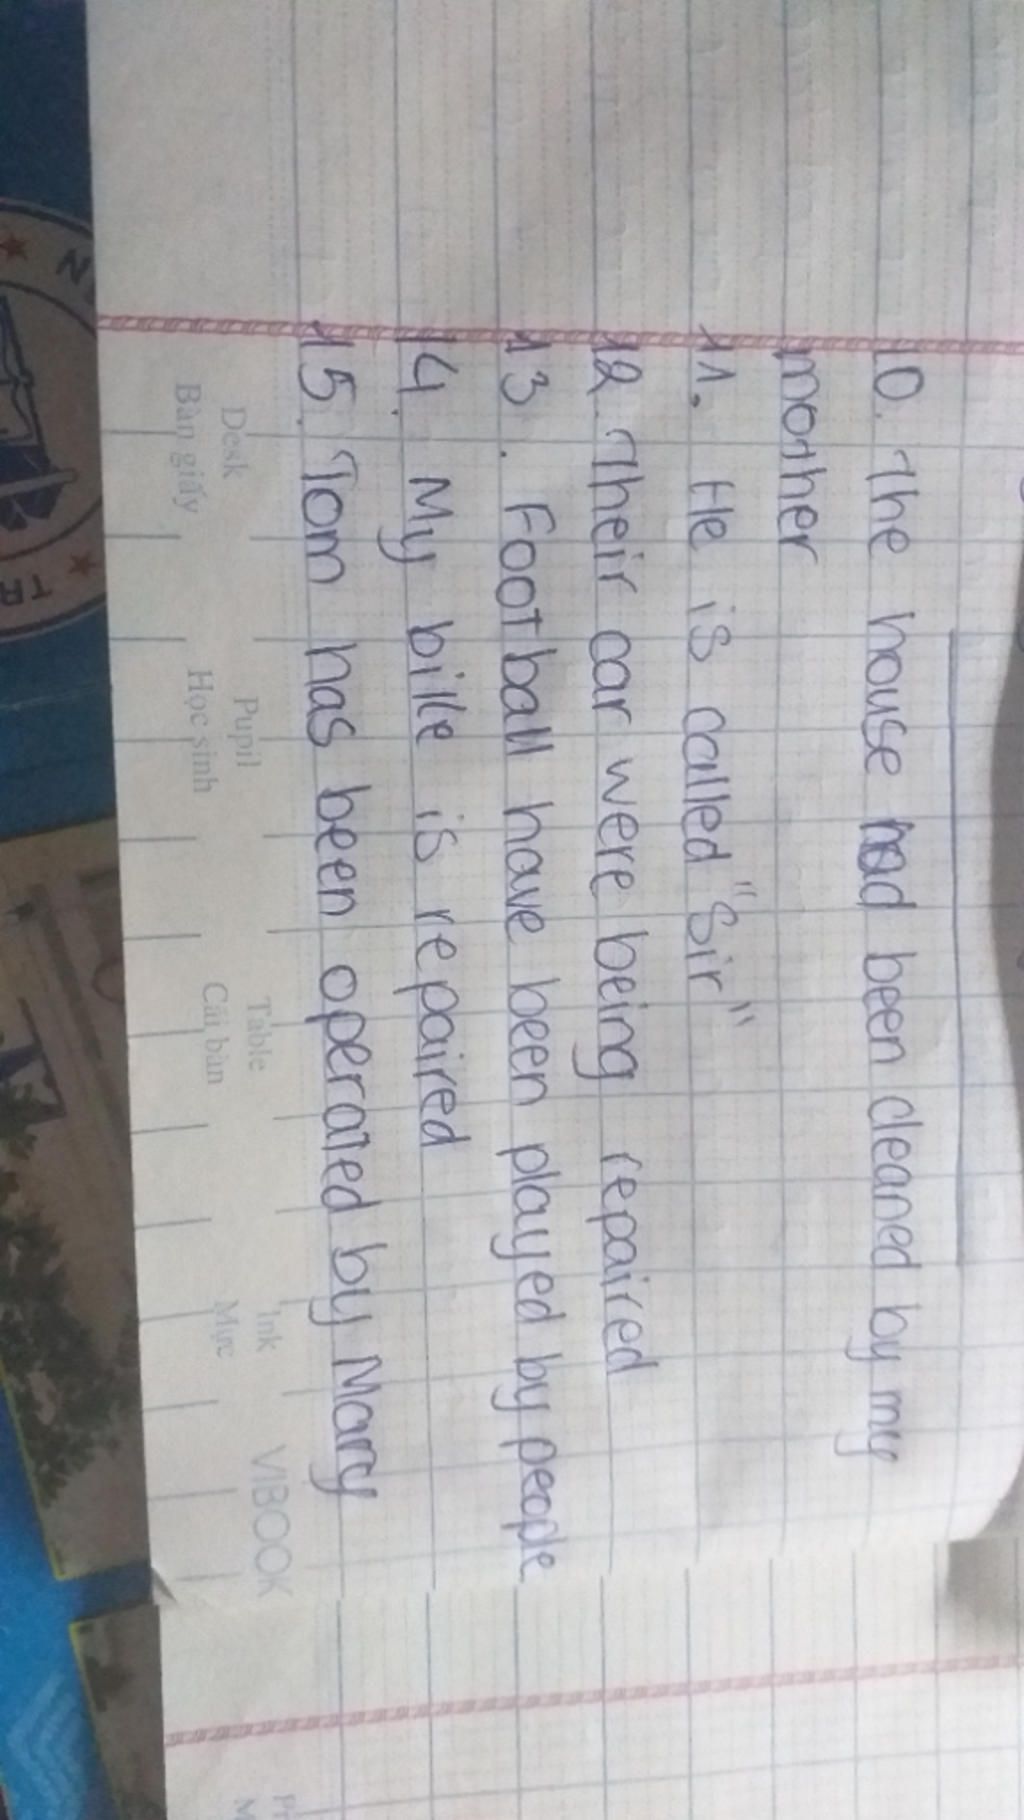 10. The house had been cleaned by my
mother
11. He is called "Sir"
12. Their car were being repaired
13. Football have been played by people
14. My bike is repaired
15. Tom has been operated by Mary
Desk Pupil Table Ink VIBOOK
Bàn giấy Học sinh Cái bàn Mực
N
TR